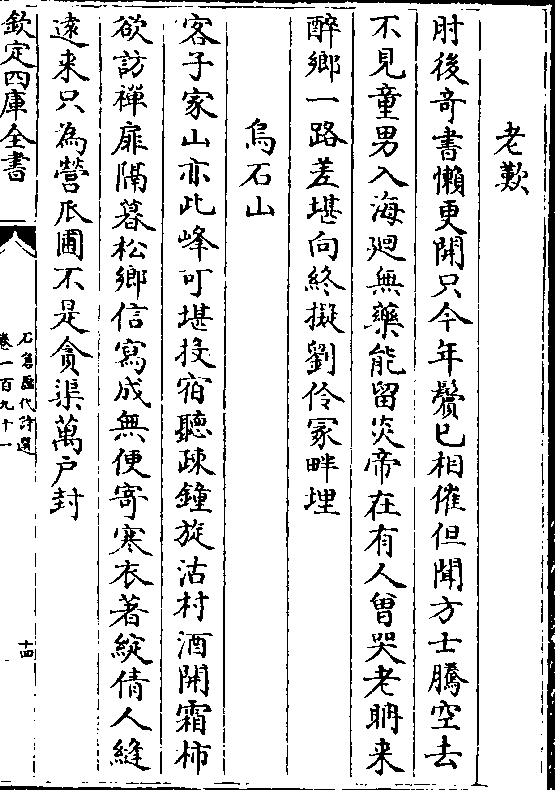 老歎
肘後奇書懶更開只今年鬢已相催但聞方士騰空去
不見童男入海廻無藥能留炎帝在有人曽哭老聃来
醉鄉一路差堪向終擬劉伶冢畔埋
烏石山
客子家山亦此峰可堪投宿聽疎鐘旋沽村酒開霜柿
欲訪禪扉隔暮松鄉信寫成無便寄寒衣著綻倩人縫
逺来只為營瓜圃不是貪渠萬户封
欽定四庫全書
石倉歴代詩選
卷一百九十一
十四